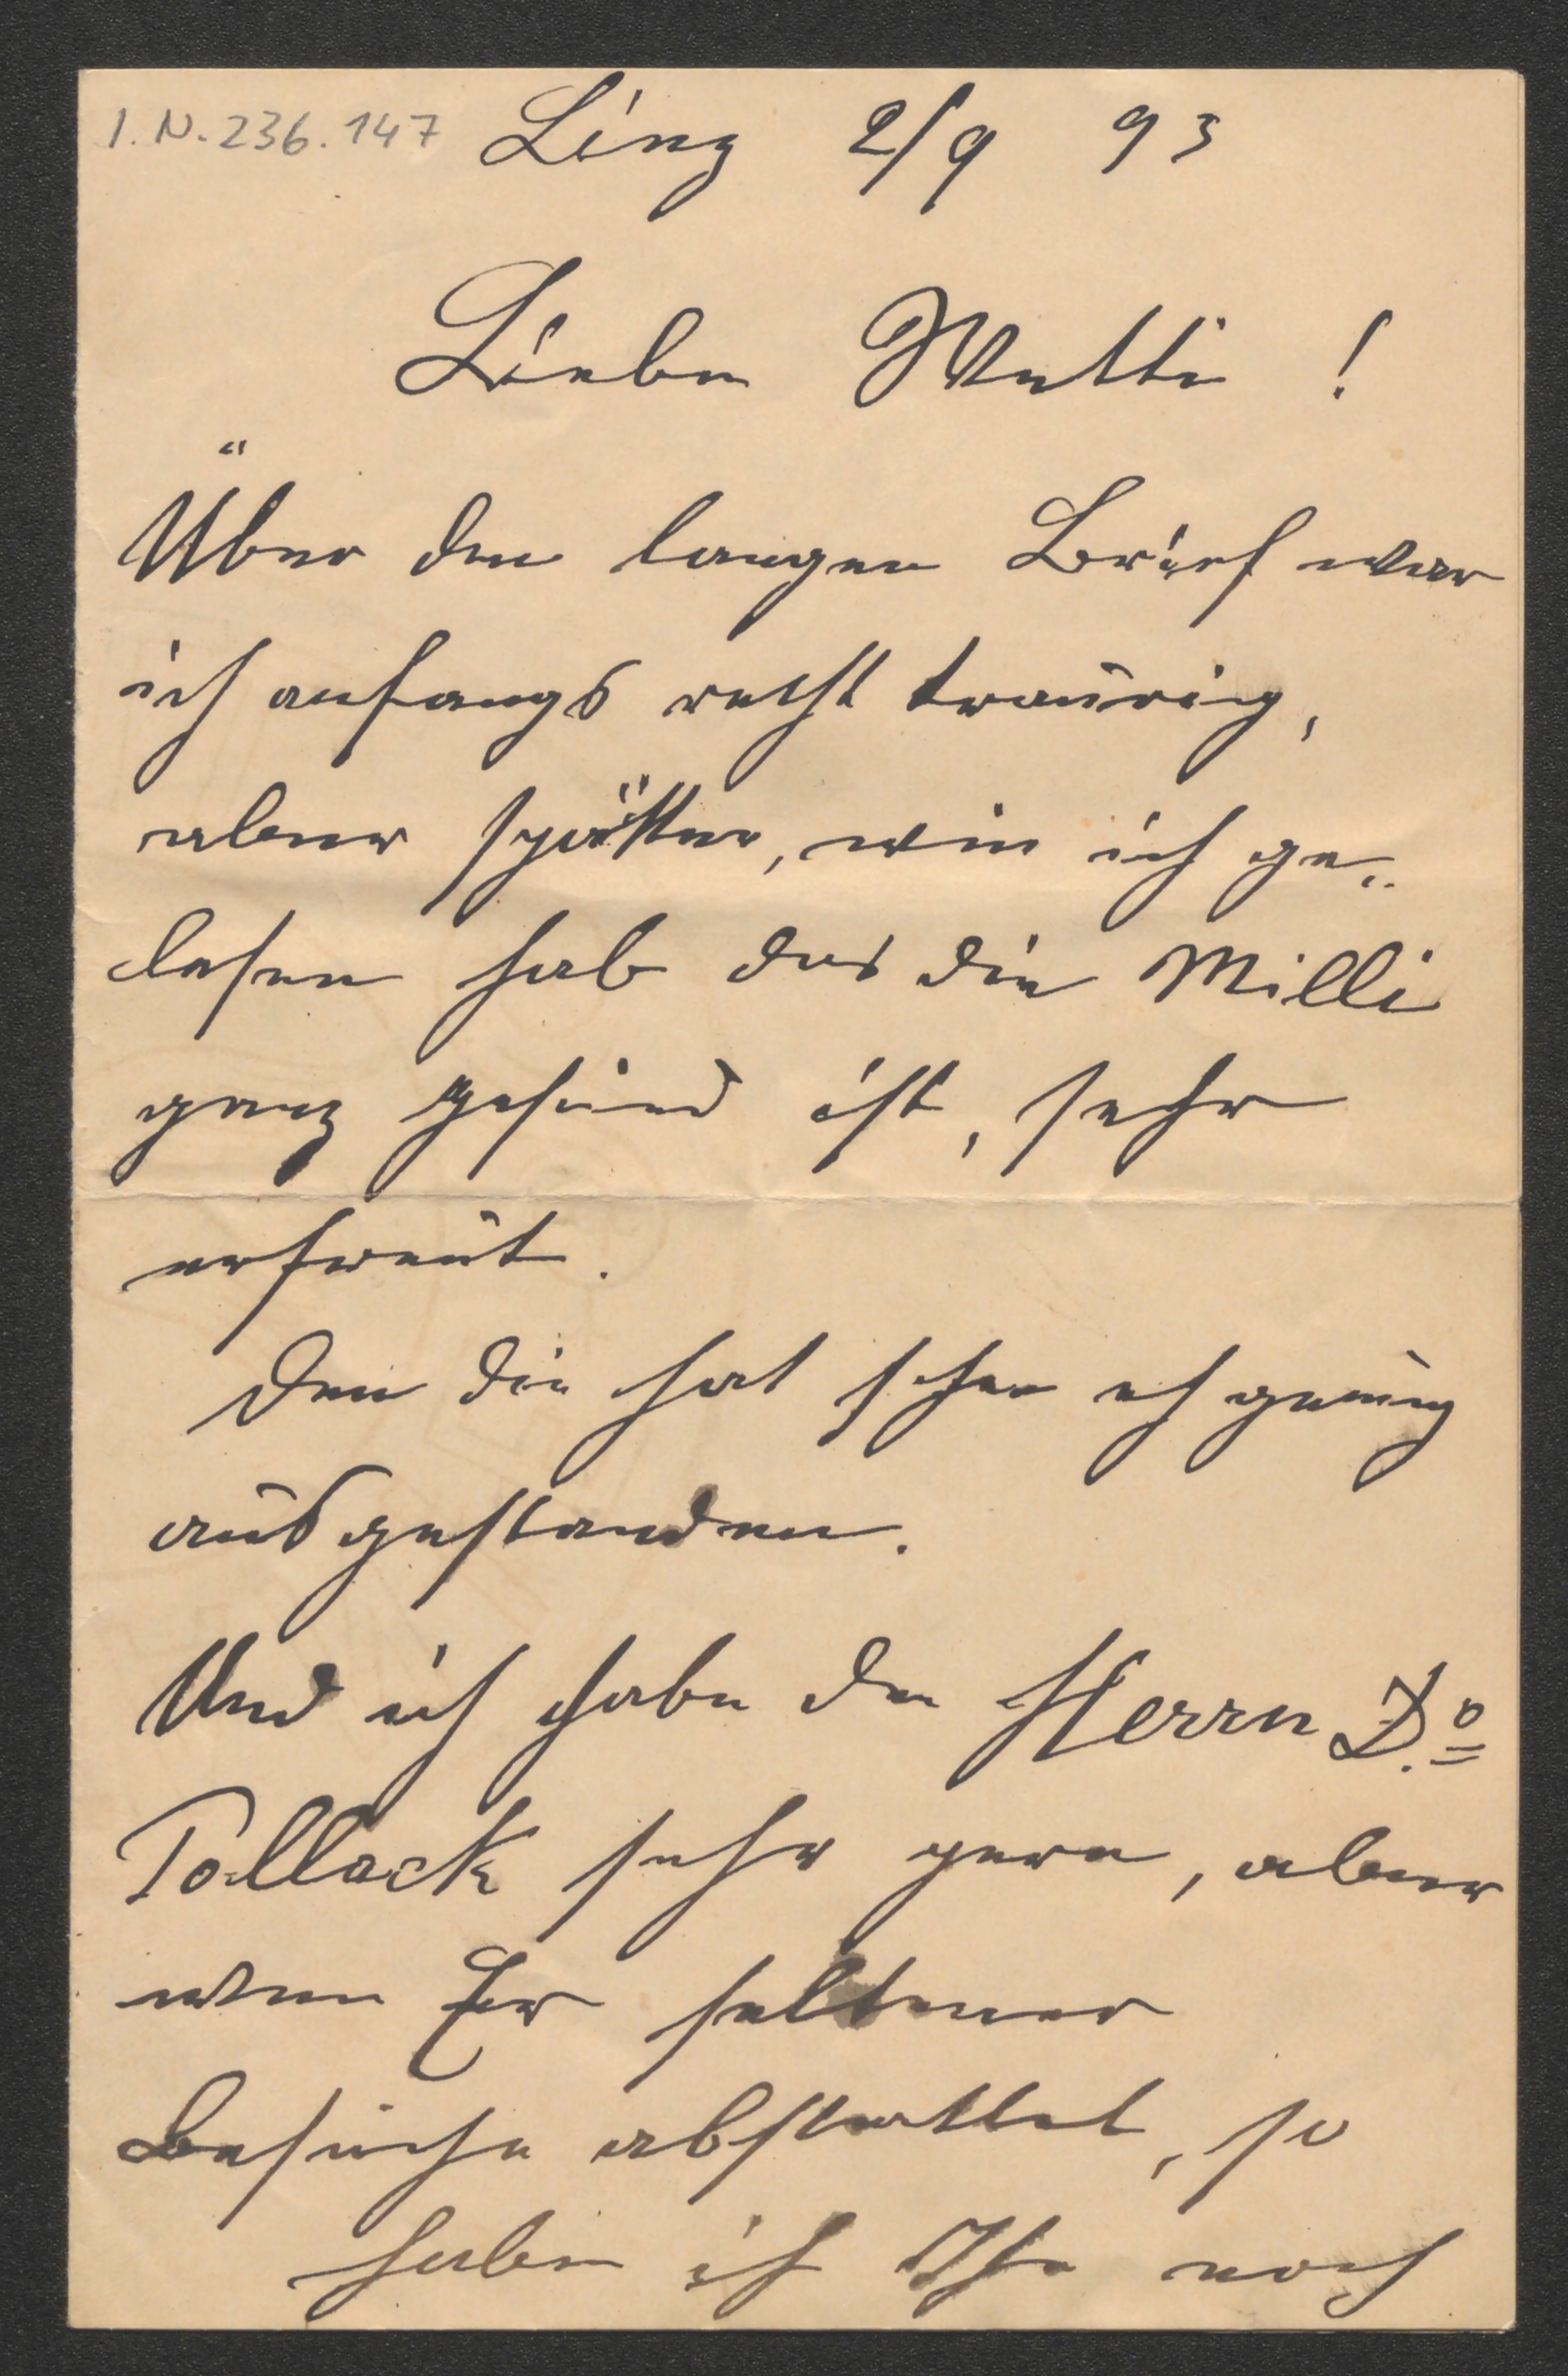 I.N. 236.147
Linz 2/9 93
Liebe Mutti !
Über den langen Brief war
ich anfangs recht traurig,
aber spätter, wie ich ge-
lesen hab das die Milli
ganz gesund ist, sehr
erfreut.
Den die hat schon eh genug
ausgestanden.
Und ich habe den Herrn Dr
Pollack sehr gern, aber
wenn Er seltener
Besuche abstattet, so
habe ich Ihn noch